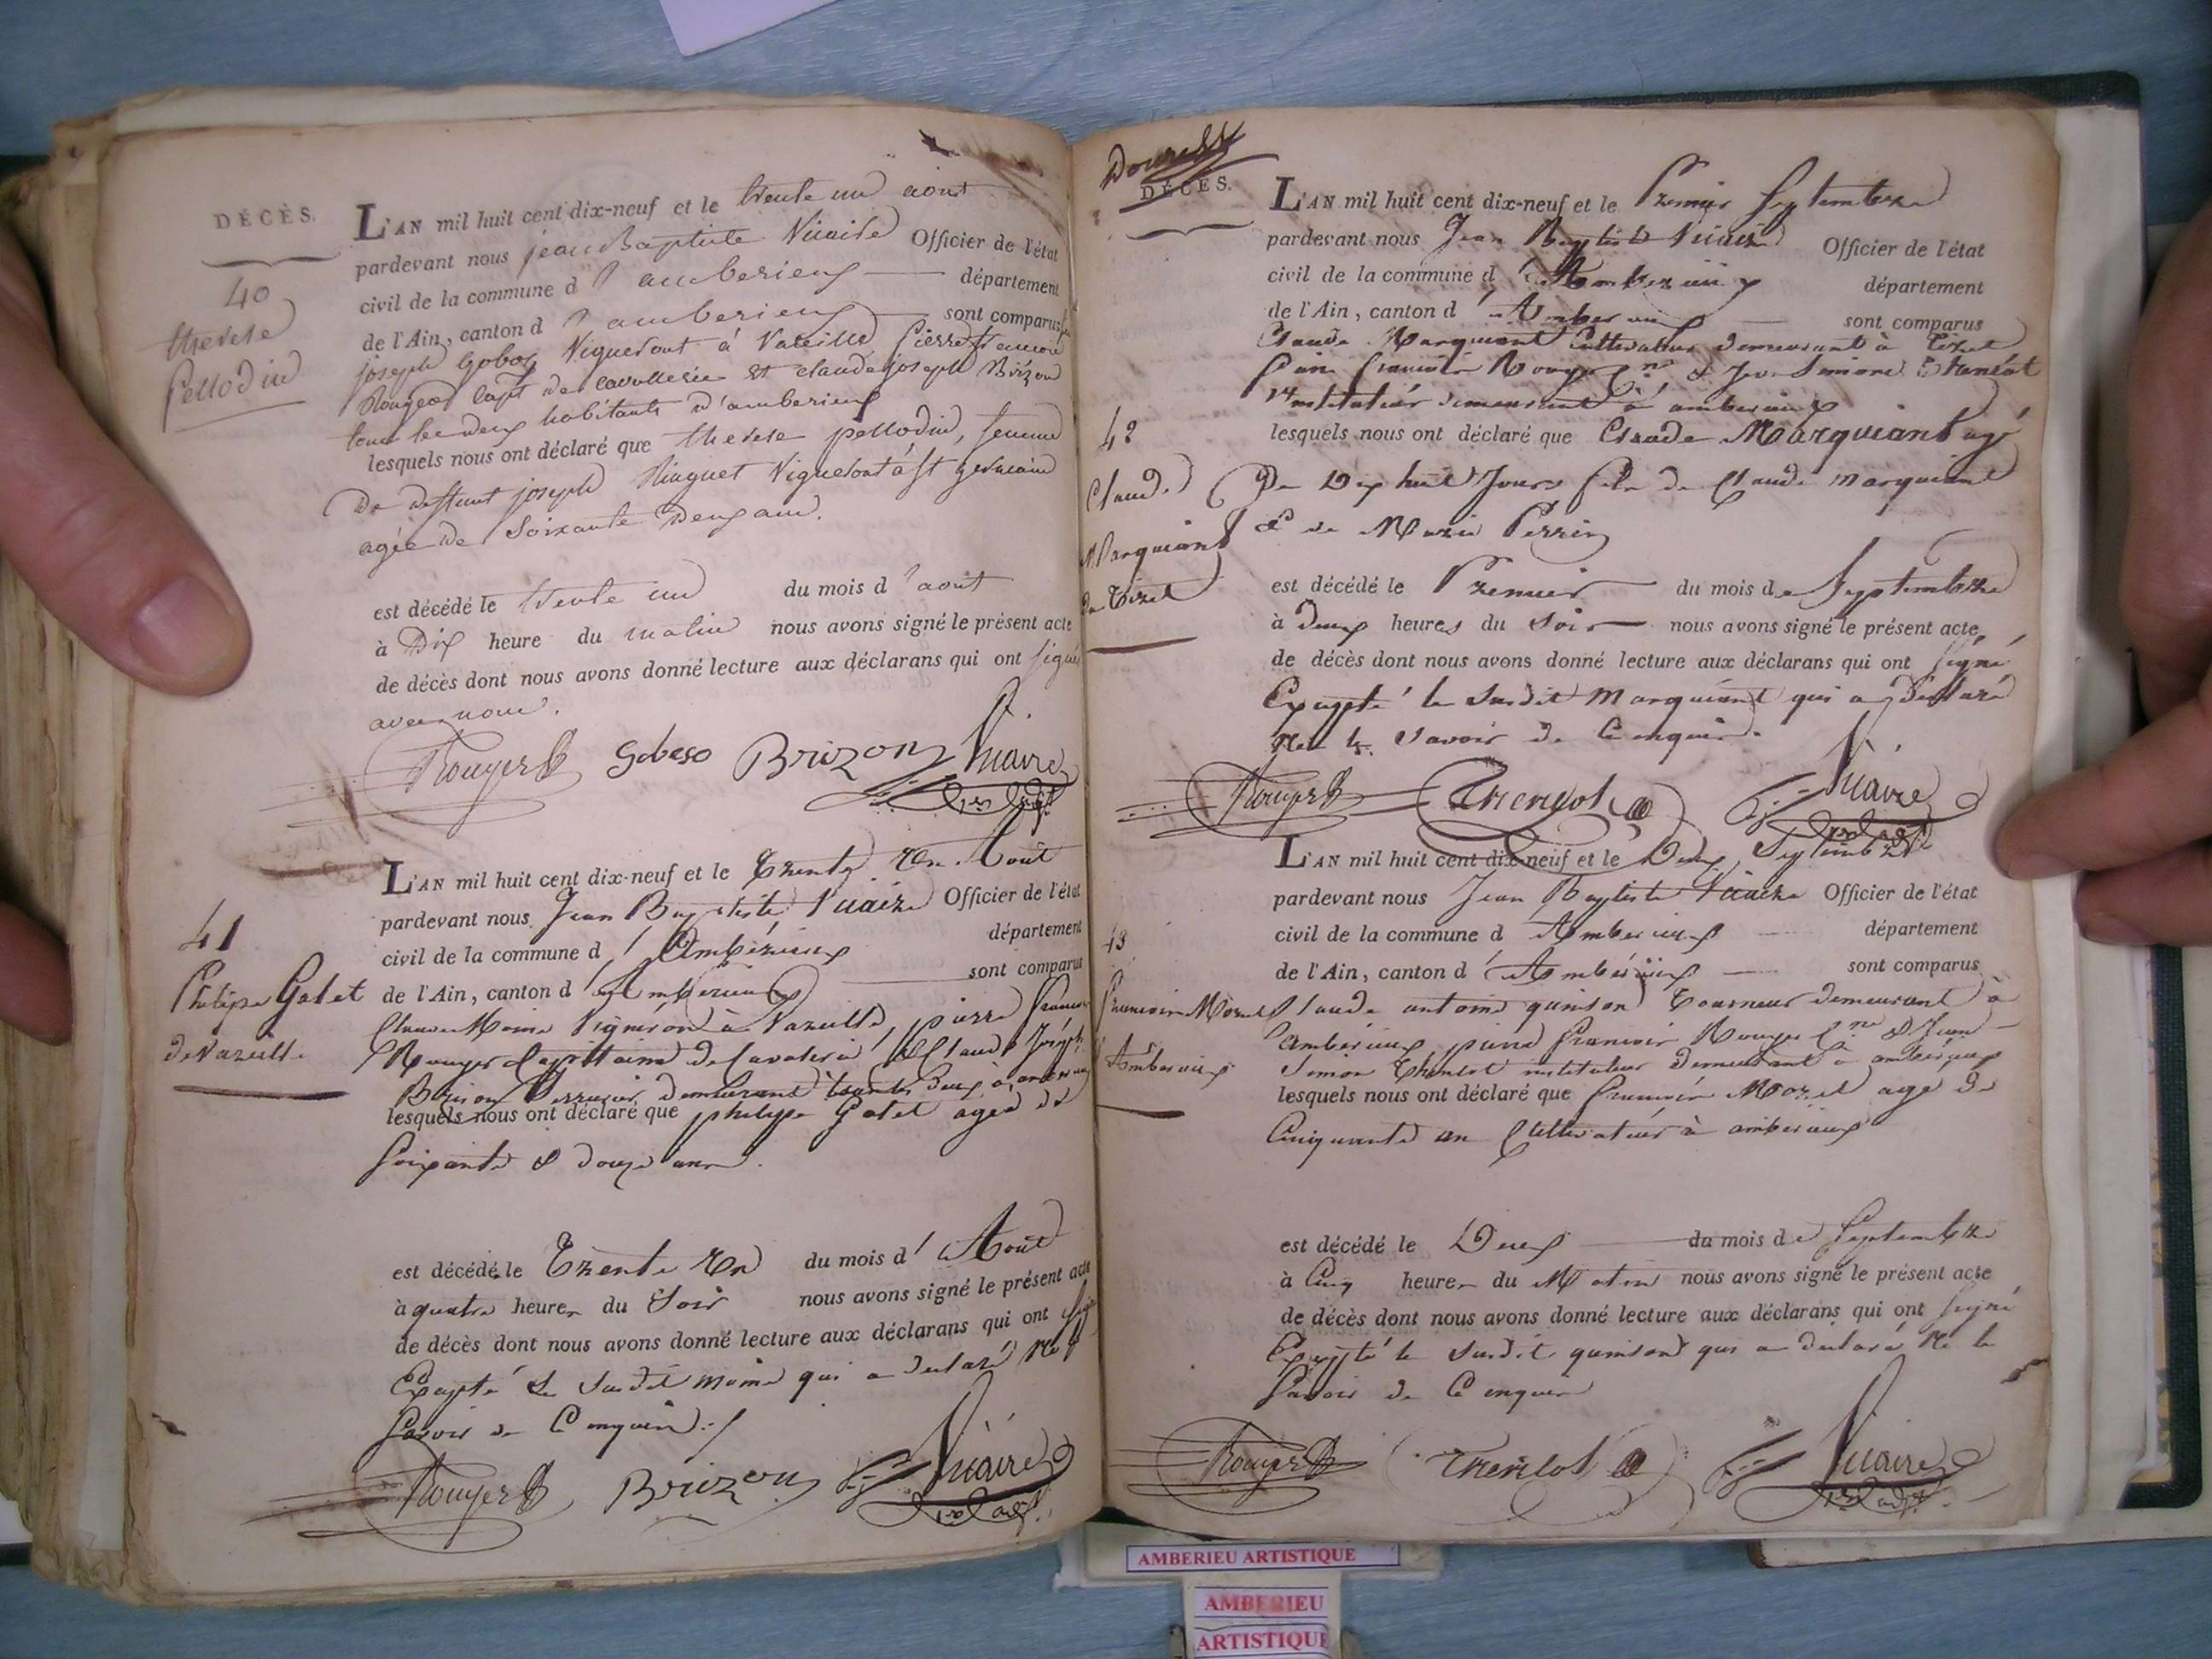 DÉCÈS.
40
therese
pellodin
L'AN mil huit cent dix-neuf et le trente un aout
pardevant nous jean Baptiste Vicaire Officier de l'état
civil de la commune d'amberieux département
de l'Ain, canton d'amberieux sont comparus
joseph Gobos Vigneront à Vareille Pierre françois
Rouger Capt de cavallerie et claude joseph Brizon
tous les deux habitants d'amberieux
lesquels nous ont déclaré que therese pellodin, femme
De deffunt joseph Vigneront à st germain
agée de Soixante Deux ans.
est décédé le trente un du mois d'aout
à Dix heure du matin nous avons signé le présent acte
de décès dont nous avons donné lecture aux déclarans qui ont signés
avec nous.
Rouyer Gobeso Brizon Vicaire
1er adjt
41
Philipe Galet
de Vareille
L'AN mil huit cent dix-neuf et le Trente Un Août
pardevant nous Jean Baptiste Vicaire Officier de l'état
civil de la commune d'Ambérieux département
de l'Ain, canton d'Ambérieux sont comparus
Claude Moine Vigneron à Vareille, pierre francois
Rouyer Capittaine de Cavalerie & Claude Joseph
Brison demeurant tous les deux à amberieux
lesquels nous ont déclaré que philippe Galet agée de
Soixante & douze ans.
est décédé le Trente Un du mois d'Août
à quatre heures du Soir nous avons signé le présent acte
de décès dont nous avons donné lecture aux déclarans qui ont signé
Excepté le Susdit moine qui a declaré Ne
Savoir de Ce enquis
Rouyer Brizon Vicaire
1er adjt
DÉCÈS.
42
Claude
Marquiant
de Tiret
L'AN mil huit cent dix-neuf et le Premier Septembre
pardevant nous Jean Baptiste Vicaire Officier de l'état
civil de la commune d'Amberieux département
de l'Ain, canton d'Amberieux sont comparus
Claude Marquiant Cultivateur demeurant à Tiret
francois Rouyer Cne & Jean Simon Thenlot
Instituteur demeurant à amberieux
lesquels nous ont déclaré que Claude Marquiant agé
De Dix huit Jours fils de Claude Marquiant
& de Marie Perrin
est décédé le Premier du mois de Septembre
à deux heures du Soir nous avons signé le présent acte
de décès dont nous avons donné lecture aux déclarans qui ont Signé
Excepté le Susdit Marquiant qui a déclaré
Ne le Savoir de Ce enquis.
Rouyer Thenlot Vicaire
1er adjt
43
francois Morel
d'Amberieux
L'AN mil huit cent dix-neuf et le Deux Septembre
pardevant nous Jean Baptiste Vicaire Officier de l'état
civil de la commune d'Amberieux département
de l'Ain, canton d'Ambérieux sont comparus
Claude antoine quinson Tourneur demeurant à
Amberieux, pierre francois Rouyer Cne & Jean
Simon Thenlot instituteur demeurant à amberieux
lesquels nous ont déclaré que francois Morel agé de
Cinquante un Cultivateur à amberieux
est décédé le Deux du mois de Septembre
à Cinq heures du Matin nous avons signé le présent acte
de décès dont nous avons donné lecture aux déclarans qui ont Signé
Excepté le Susdit quinson qui a declaré Ne le
Savoir de Ce enquis
Rouyer Thenlot Vicaire
1er adjt
AMBERIEU ARTISTIQUE
AMBERIEU
ARTISTIQUE